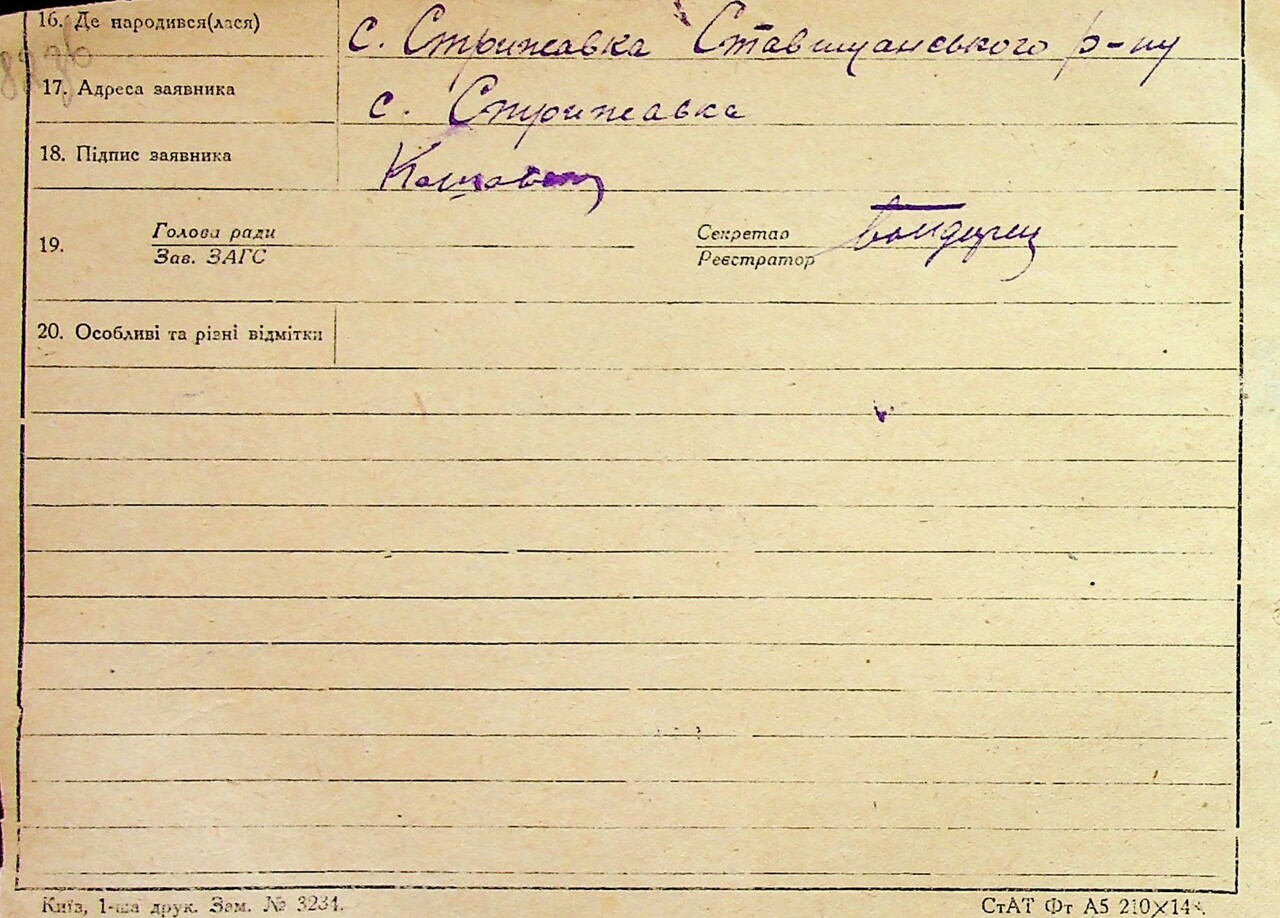 16. Де народився(лася) с. Стрижавка Ставищанського р-ну
17. Адреса заявника с. Стрижавка
18. Підпис заявника
19. Голова ради
Зав. ЗАГС
Секретар
Реєстратор
20. Особливі та різні відмітки
Київ, 1-ша друк. Зам. № 3234.
СтАТ Фт А5 210×148